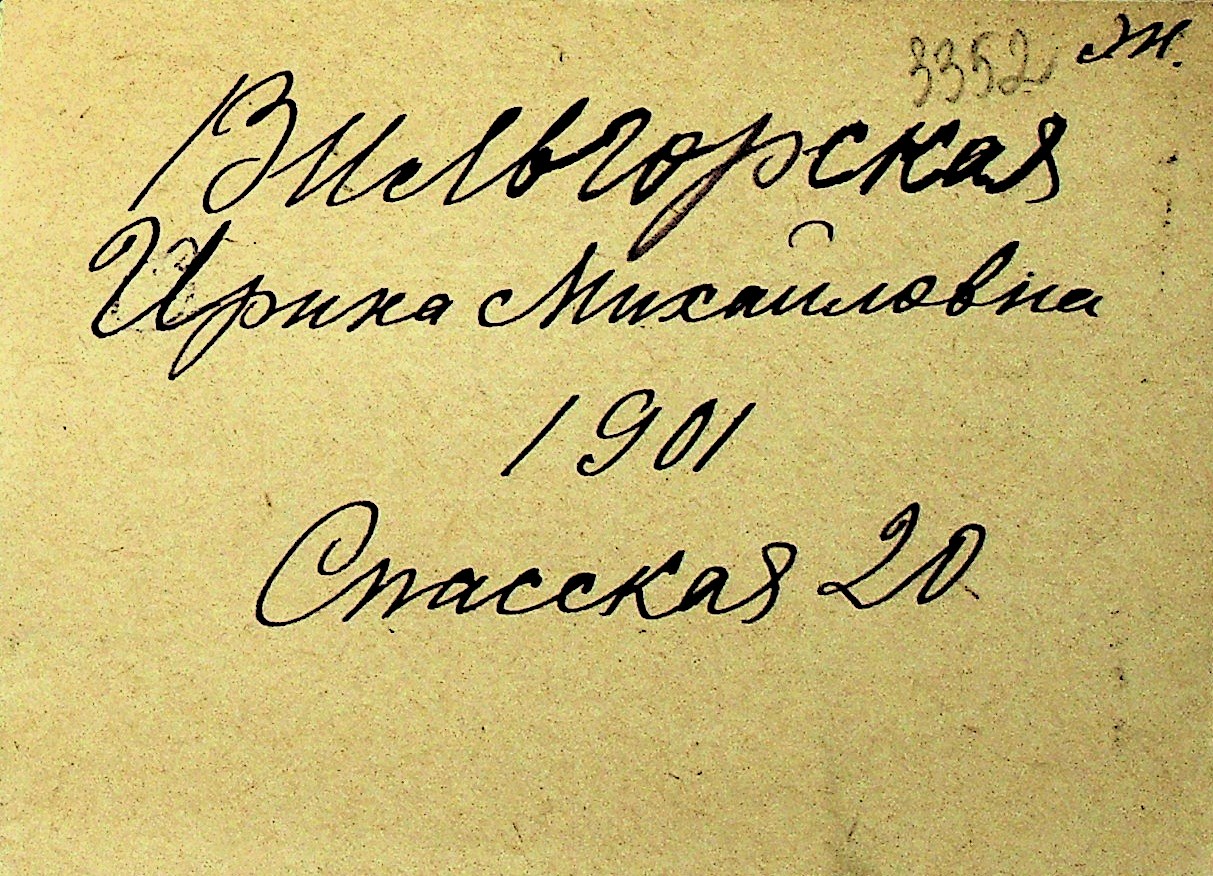 3352 Эн.
Вильгорская
Ирина Михайловна
1901
Спасская 20